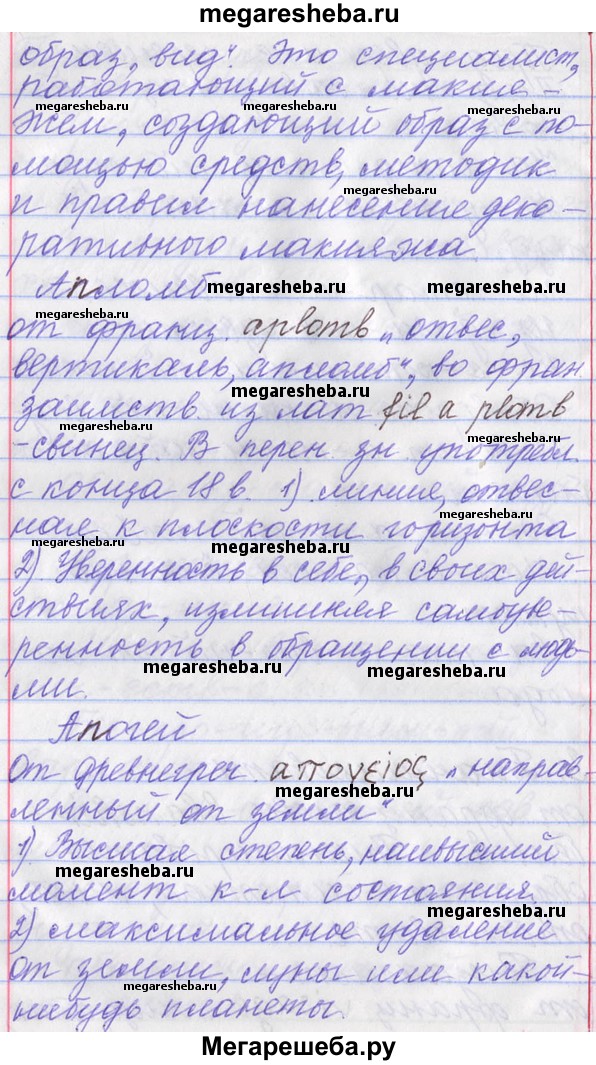 megaresheba.ru
образ, вид". Это специалист,
работающий с макия-
megaresheba.ru
жем, создающий образ с по-
мощью средств, методик
megaresheba.ru
и правил нанесение деко-
ративного макияжа
Апломб
megaresheba.ru megaresheba.ru
megaresheba.ru
от франц. aplomb „отвес,
вертикаль, апломб", во фран
megaresheba.ru
заимств. из лат fil a plomb
-свинец. В перен зн употребл
с конца 18 в. 1) линия, отвес-
ная к плоскости горизонта
megaresheba.ru megaresheba.ru
2) Уверенность в себе, в своих дей-
ствиях, излишняя самоуве-
ренность в обращении с людь-
megaresheba.ru megaresheba.ru
ми.
Апогей
от древнегреч. απογειος „направ-
ленный от земли"
megaresheba.ru
1) Высшая степень, наивысший
megaresheba.ru
момент к-л состояния.
megaresheba.ru
2) максимальное удаление
от земли, луны или какой-
megaresheba.ru
нибудь планеты.
Мегарешеба.ру